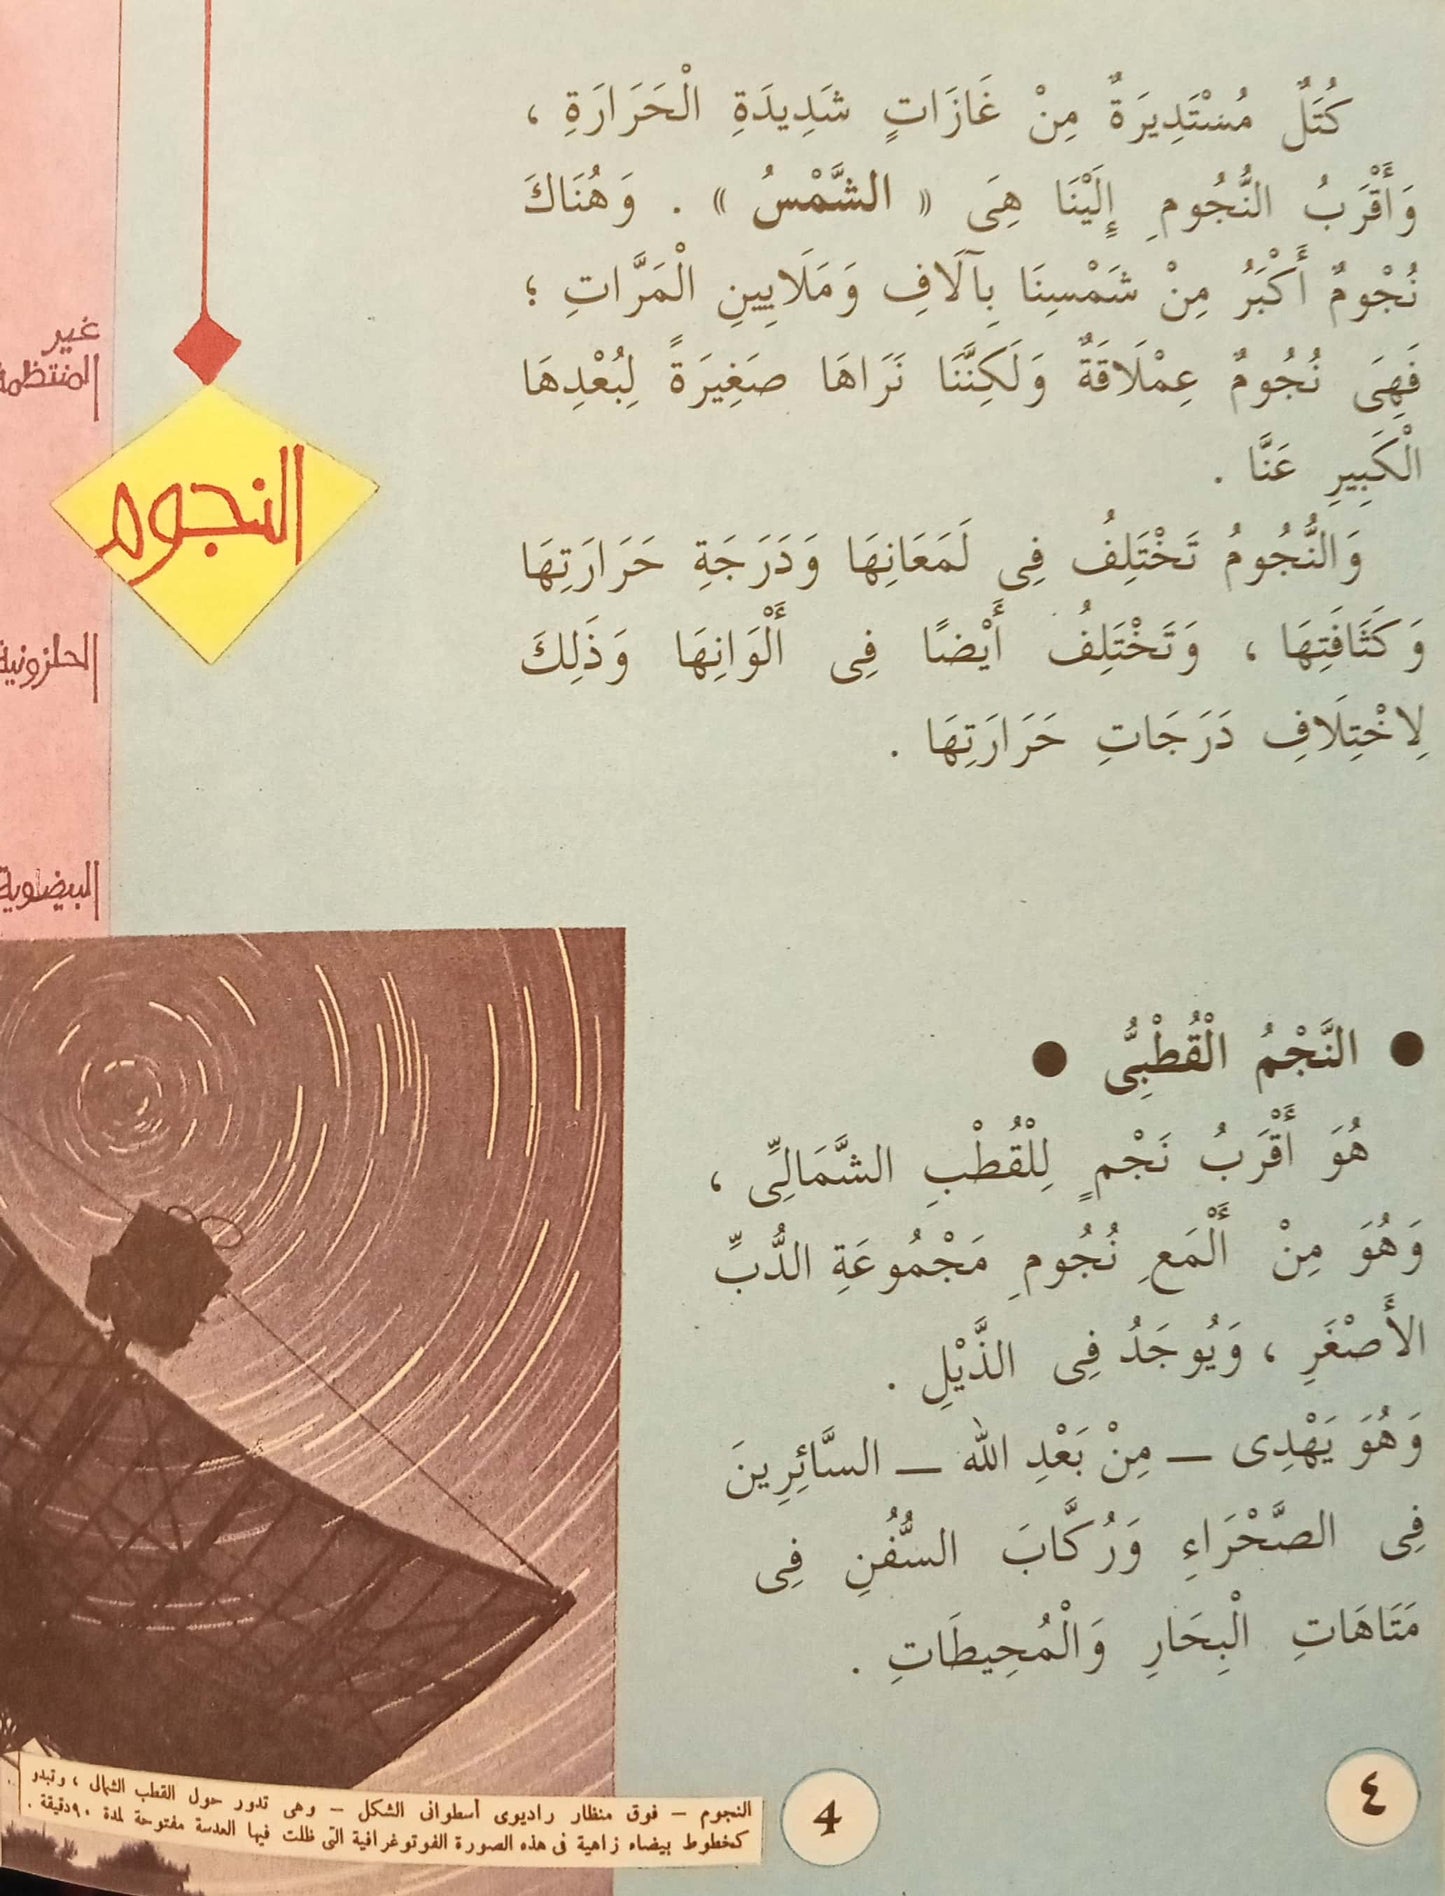 كُتَلٌ مُسْتَدِيرَةٌ مِنْ غَازَاتٍ شَدِيدَةِ الْحَرَارَةِ ،
وَأَقْرَبُ النُّجُومِ إِلَيْنَا هِىَ « الشَّمْسُ » . وَهُنَاكَ
نُجْومٌ أَكْبَرُ مِنْ شَمْسِنَا بِآلَافِ وَمَلَايِينِ الْمَرَّاتِ ؛
فَهِىَ نُجُومٌ عِمْلَاقَةٌ وَلَكِنَّنَا نَرَاهَا صَغِيرَةً لِبُعْدِهَا
الْكَبِيرِ عَنَّا .
وَالنُّجُومُ تَخْتَلِفُ فِى لَمَعَانِهَا وَدَرَجَةِ حَرَارَتِهَا
وَكَثَافَتِهَا ، وَتَخْتَلِفُ أَيْضًا فِى أَلْوَانِهَا وَذَلِكَ
لِاخْتِلَافِ دَرَجَاتِ حَرَارَتِهَا .
النجوم
غير
المنتظمة
الحلزونية
البيضوية
● النَّجْمُ الْقُطْبِىُّ ●
هُوَ أَقْرَبُ نَجْمٍ لِلْقُطْبِ الشَّمَالِىِّ ،
وَهُوَ مِنْ أَلْمَعِ نُجُومِ مَجْمُوعَةِ الدُّبِّ
الأَصْغَرِ ، وَيُوجَدُ فِى الذَّيْلِ .
وَهُوَ يَهْدِى – مِنْ بَعْدِ الله – السَّائِرِينَ
فِى الصَّحْرَاءِ وَرُكَّابَ السُّفُنِ فِى
مَتَاهَاتِ الْبِحَارِ وَالْمُحِيطَاتِ .
النجوم – فوق منظار راديوى أسطوانى الشكل – وهى تدور حول القطب الشمالى ، وتبدو
كخطوط بيضاء زاهية فى هذه الصورة الفوتوغرافية التى ظلت فيها العدسة مفتوحة لمدة ٩٠ دقيقة .
4
٤